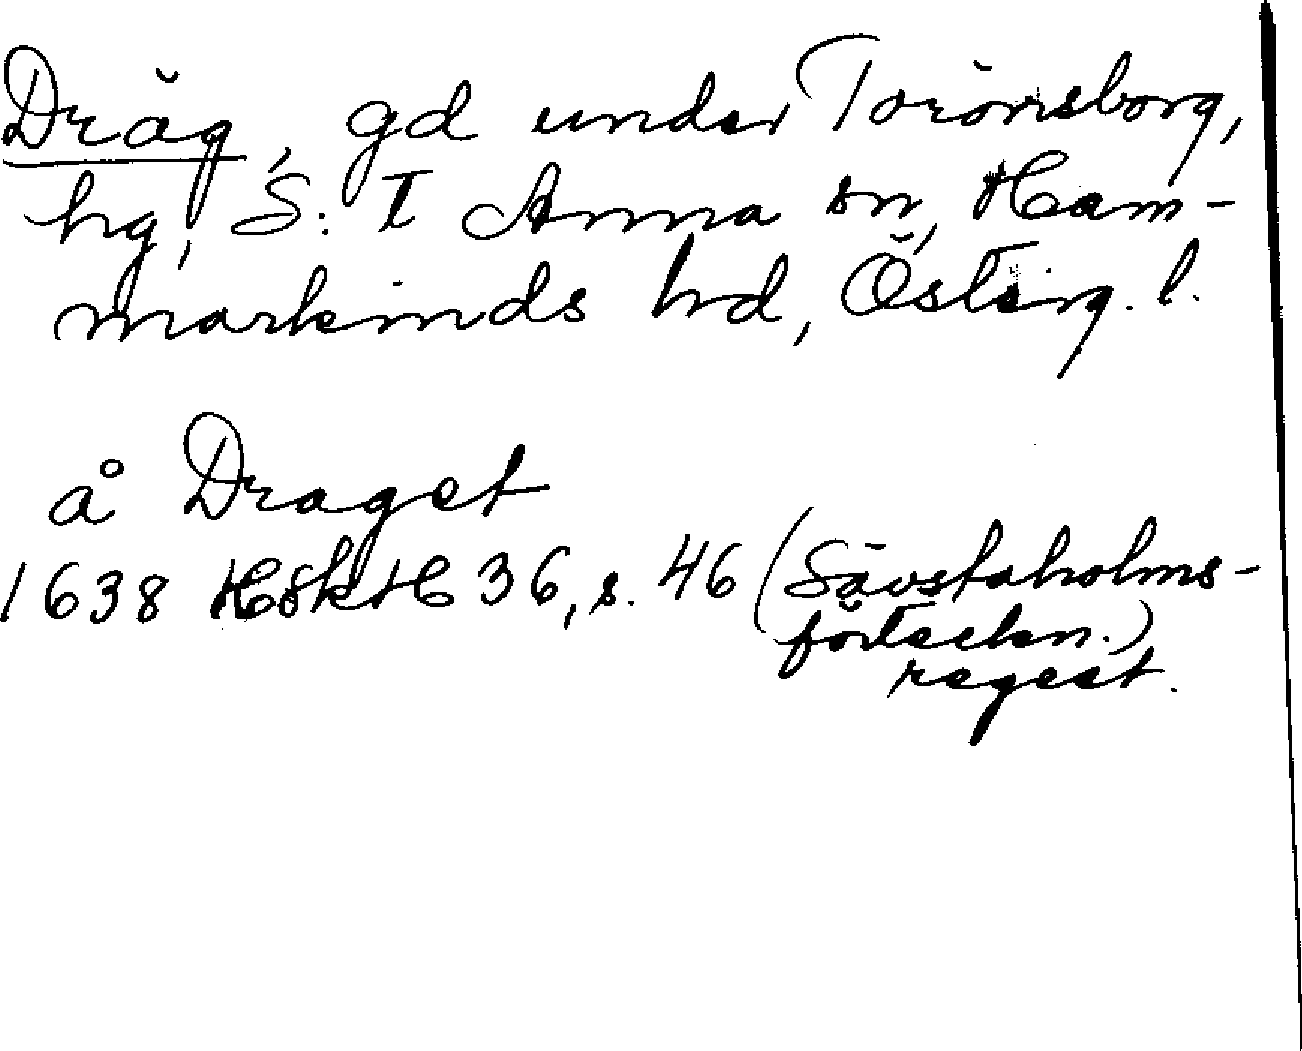 Dräg, gd under Torönsborg,
hg, S:t Anna sn, Ham-
markinds hd, Österg. l.
å Draget
1638 HSkH 36, s. 46 (Sävstaholms-
förteckn.)
regest.